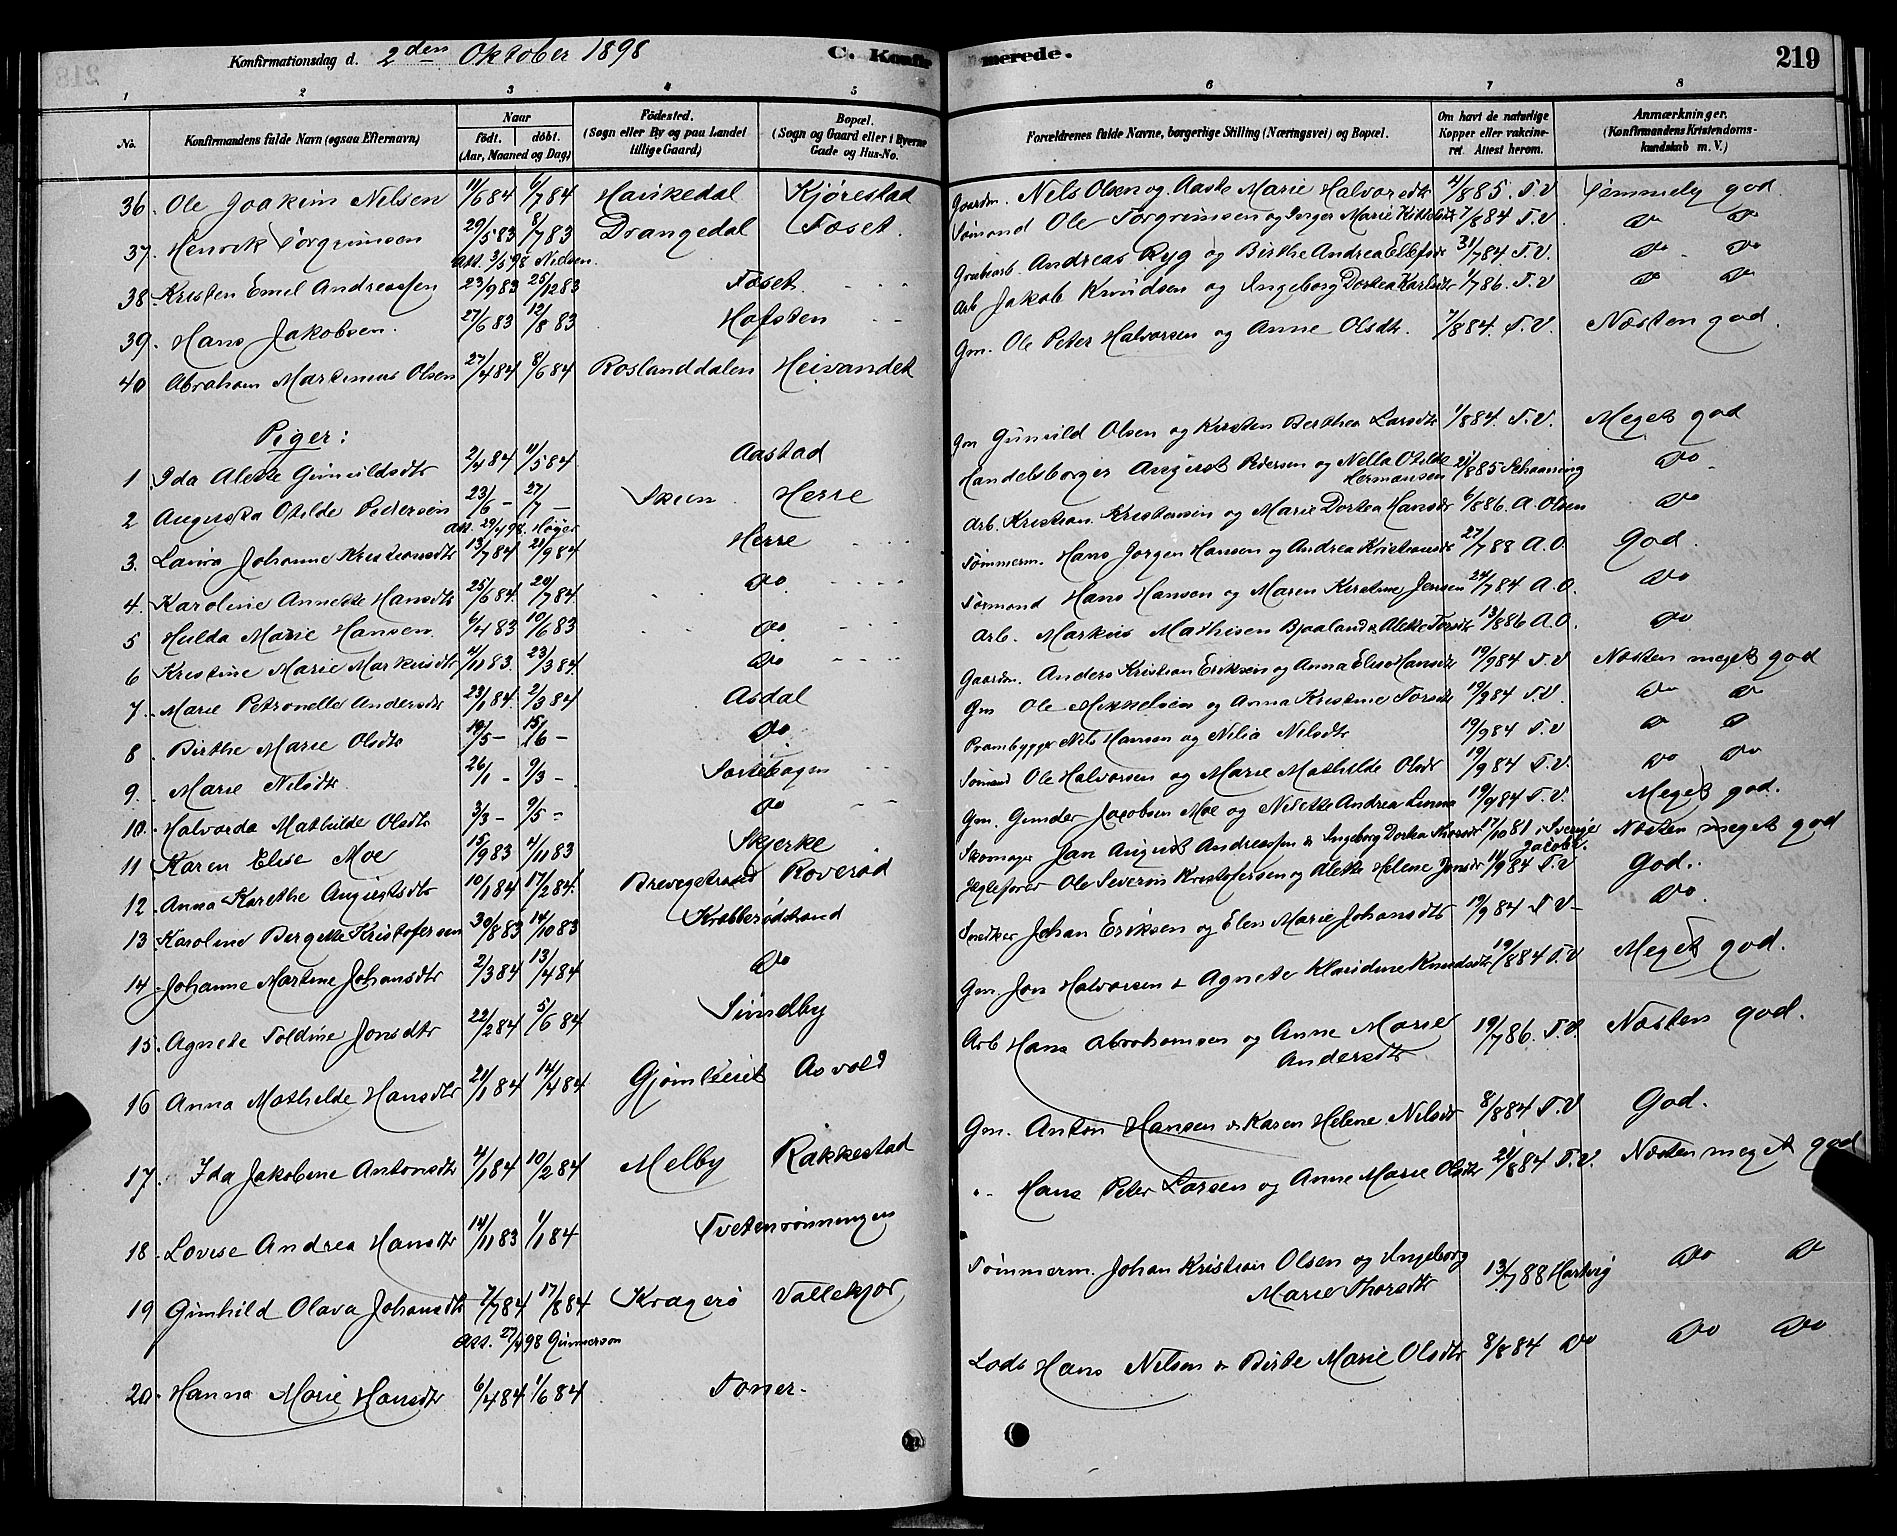 Konfirmationsdag d. 2den Oktober 1898 C. Konfirmerede. 219
1 2 3 4 5 6 7 8
No. Konfirmandens fulde Navn (ogsaa Efternavn) Naar født. døbt. (Aar, Maaned og Dag) Fødested. (Sogn eller By og paa Landet tillige Gaard) Bopæl. (Sogn og Gaard eller i Byerne Gade og Hus-No. Forældrenes fulde Navne, borgerlige Stilling (Næringsvei) og Bopæl. Om havt de naturlige Kopper eller vakcineret. Attest herom. Anmærkninger. (Konfirmandens Kristendomskundskab m. V.)
36. Ole Joakim Nilsen 11/6 84 6/7 84 Haukedal Kjørestad Gaardm. Nils Olsen og Aaste Marie Halvorsdtr 4/8 85. T.V. Temmelig god.
37. Henrik Torgrimsen 29/5 83 8/7 83 Drangedal Foset. Sømand Ole Torgrimsen og Inger Marie 7/8 84 T.V. Do Do
Att. 3/5 98 Nielsen.
38. Kristen Emil Andreassen 23/9 83 25/12 83 Foset. Andreas Ryg og Birthe Andrea Ellefsdtr 31/7 84 T.V. Do Do
39. Hans Jakobsen. 27/6 83 12/8 83 Hafsten Arb Jakob Knudsen og Ingeborg Dortea Karlsdtr 1/7 86. T.V Do Do
40 Abraham Martinius Olsen 27/4 84 8/6 84 Roslanddalen Heivandet Gm. Ole Peter Halvorsen og Anne Olsdtr. 7/8 84. T.V. Næsten god.
Piger:
1 Ida Alette Gunuldsdtr 2/4 84 11/5 84 Aastad Gm Gunuld Olsen og Kirsten Berthea Larsdtr 1/8 84. T.V. Meget god
2 Augusta Otilde Pedersen 23/6 - 27/7 - Skien Herre Handelsborger August Pedersen og Nella Otilde Hermansen 21/8 85 Schaaning Do
Att. 29/4 98. Høyer
3. Laura Johanne Kristiansdtr 13/7 84 21/9 84 Herre Arb. Kristian Kristensen og Marie Dortea Hansdtr 6/8 86. A. Olsen Do
4. Karoline Annette Hansdtr 25/6 84. 20/7 84 Do. Tømmerm. Hans Jørgen Hansen og Andrea Kristiansdtr 27/7 88 A.O. God.
5 Hulda Marie Hansen 6/4 83 10/6 83 Do Sømand Hans Hansen og Maren Kirstine Jensen 24/7 84 A.O. Do
6 Kristine Marie Markusdtr 4/11 83. 23/3 84. Do Arb. Markus Mathisen Bjaaland & Alette Torsdtr 13/8 86 A.O. Do
7. Marie Petronelle Andersdtr 23/1 84 2/3 84 Asdal Gaardm. Anders Kristian Eriksen og Anna Elise Hansdtr 19/9 84 T.V Næsten meget god
8. Birthe Marie Olsdtr 19/5 - 15/6 - Do Gm Ole Mikkelsen og Anna Kristine Torsdtr 19/9 84 T.V. Do Do
9. Marie Nilsdtr. 26/1 - 9/3 - Sortebogen Prambygger Nils Hansen og Nilia Nilsdtr 19/9 84 T.V Do Do
10. Halvorda Mathilde Olsdtr 3/3 - 9/5 - Do Sømand Ole Halvorsen og Marie Mathilde Olsdtr 19/9 84 T.V. Do Do
11 Karen Elise Moe 15/9 83 4/11 83 Skjerke Gm. Gunder Jacobsen Moe og Nilette Andrea 19/9 84 T.V. Meget god.
12. Anna Karethe Augustsdtr 10/1 84 17/2 84. Brevigstrand Roverød Skomager Jan August Andreassen & Ingeborg Dortea Thorsdtr 17/10 81 i Sverige Jacobs. Næsten meget god
13 Karoline Bergette Kristofersen 30/8 83 14/10 83 Krabberødstrand Ole Severin Kristofersen og Alette Helene Jonsdtr 14/9 84 T.V God.
14. Johanne Martine Johansdtr 2/3 84 13/4 84 Do Snedker Johan Eriksen og Elen Marie Johansdtr 19/9 84 T.V- Do.
15. Agnete Toldine Jonsdtr 22/2 84 5/6 84 Sundby Gm. Jon Halvorsen & Agnete Klaudine Knudsdtr 19/8 84 T.V Meget god.
16 Anna Mathilde Hansdtr 21/1 84 14/4 84 Asvold Arb Hans Abrahamsen og Anne Marie Andersdtr 19/7 86. T.V. Næsten god.
17. Ida Jakobine Antonsdtr 4/1 84 10/2 84 Melby Rakkestad Gm. Anton Hansen & Karen Helene Nilsdtr 8/8 84 T.V God.
18. Lovise Andrea Hansdtr 14/11 83 1/1 84 Tvetenrønningen " Hans Peter Larsen og Anne Marie Olsdtr 21/8 84 T.V. Næsten meget god
19 Gunhild Olava Johansdtr 7/7 84 17/8 84 Kragerø Vallekjær Tømmerm. Johan Kristian Olsen og Ingeborg Marie Thorsdtr 13/7 88 Hartvig Do Do
Att. 27/4 98 Gunnerson
20. Hanna Marie Hansdtr 6/4 84 1/6 84 Toner. Lods Hans Nilsen & Birte Marie Olsdtr 8/8 84 Do Do Do